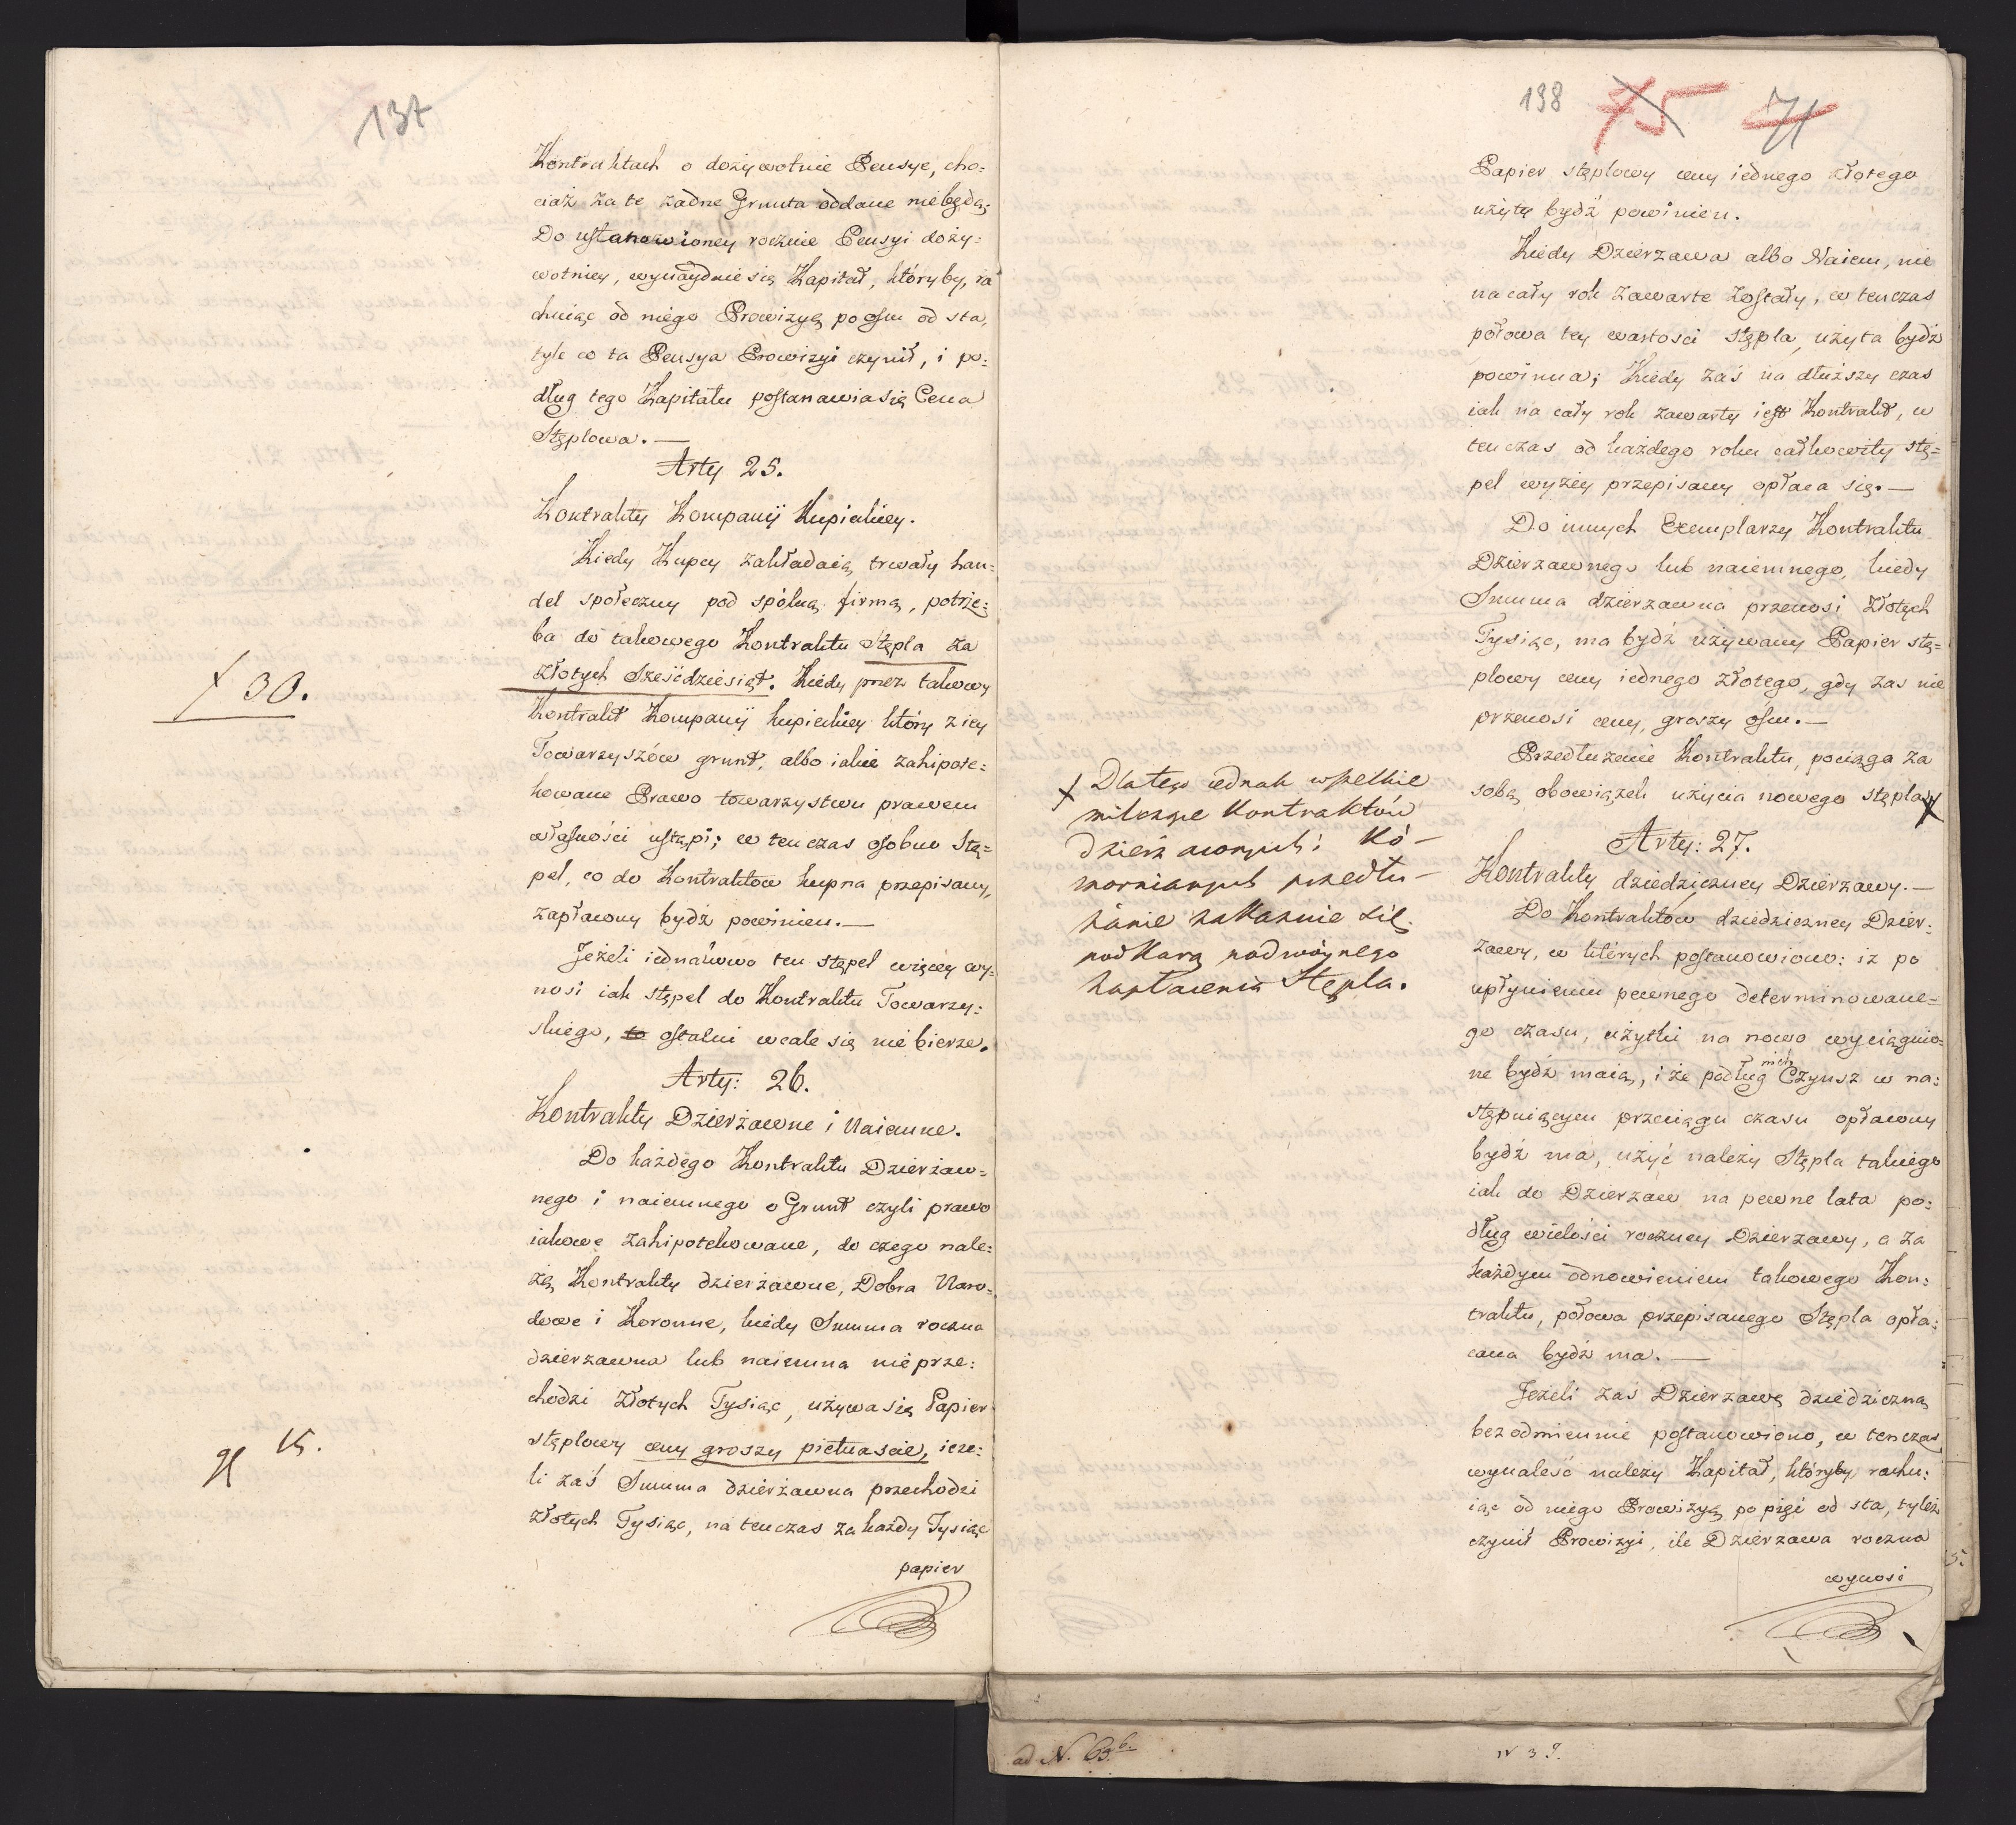 137
Kontraktach o dożywotnie Pensye, cho:
ciaż za te żadne Grunta oddane niebędą;
Do ustanowioney rocznie Pensyi doży:
wotniey, wynaydnie się Kapitał, któryby, ra
chuiąc od niego Prowizyą po osm od sta,
tyle co ta Pensya Prowizyi czynił, i po:
dług tego Kapitału postanawia się Cena
Stęplowa. —
Arty 25.
Kontrakty Kompanij Kupieckiey.
Kiedy Kupcy zakładaią trwały han:
del społeczny pod spólną firmą, potrze:
ba do takowego Kontraktu Stępla za
złotych Sześćdziesiąt. Kiedy przez takowy
Kontrakt Kompanij kupieckiey który z iey
Towarzyszów grunt, albo iakie zahipote:
kowane Prawo towarzystwu prawem
własności ustąpi; w ten czas osobno Stę=
pel, co do Kontraktow kupna przepisany,
zapłacony bydź powinien. —
Jeżeli iednakowo ten stępel więcey wy:
nosi iak stępel do Kontraktu Towarzy:
skiego, to ostatni wcale się nie bierze.
Arty: 26.
Kontrakty Dzierżawne i Naiemne.
Do każdego Kontraktu Dzierżaw=
nego i naiemnego o Grunt czyli prawo
iakowe zahipotekowane, do czego nale:
żą Kontrakty dzierżawne, Dobra Naro-
dowe i Koronne, kiedy Summa roczna
dzierżawna lub naiemna nieprze:
chodzi Złotych Tysiąc, używa się Papier
stęplowy ceny groszy pietnascie, ieże:
li zaś Summa dzierżawna przechodzi
Złotych Tysiąc, na ten czas za każdy Tysiąc
papier
30.
15.
138
75
71
Papier stęplowy ceny iednego złotego
użyty bydź powinien.
Kiedy Dzierżawa albo Naiem, nie
na cały rok zawarte zostały, w ten czas
połowa tey wartosci stępla, użyta bydź
powinna; Kiedy zaś na dłuższy czas
iak na cały rok zawarty iest Kontrakt, w
ten czas od każdego roku całkowity stę=
pel wyżey przepisany opłaca się. —
Do innych Exemplarzy Kontraktu
Dzierzawnego lub naiemnego, kiedy
Summa dzierzawna przenosi Złotych
Tysiąc, ma bydź używany Papier stę=
plowy ceny iednego złotego, gdy zas nie
przenosi ceny, groszy osm. —
Przedłużenie Kontraktu, pociąga za
sobą obowiązek użycia nowego stępla x
x Dlatego iednak wszelkie
milczące Kontraktów
dzierżawnych i Ko-
mornianych przedłu-
żanie zakazuie się
pod Karą podwóynego
zapłacenia Stępla.
Arty: 27.
Kontrakty dziedziczney Dzierżawy. —
Do Kontraktów dziedziczney Dzier:
żawy, w których postanowiono: iż po
upłynieniu pewnego determinowane=
go czasu, użytki na nowo wyciągnio=
ne bydź maią, i że podług nich Czynsz w na:
stępuiącym przeciągu czasu opłacony
bydź ma, użyć należy Stępla takiego
iak do Dzierżaw na pewne lata po:
dług wielości roczney Dzierżawy, a za
każdym odnowieniem takowego Kon:
traktu, połowa przepisanego Stępla opła:
cana bydź ma. —
Jeżeli zaś Dzierżawę dziedziczną
bezodmiennie postanowiono, w ten czas
wynaleść należy Kapitał, któryby rachu:
iąc od niego Prowizyą po pięć od sta, tyleż
czynił Prowizyi, ile Dzierżawa roczna
wynosi
ad N. 63.b.
N 39.